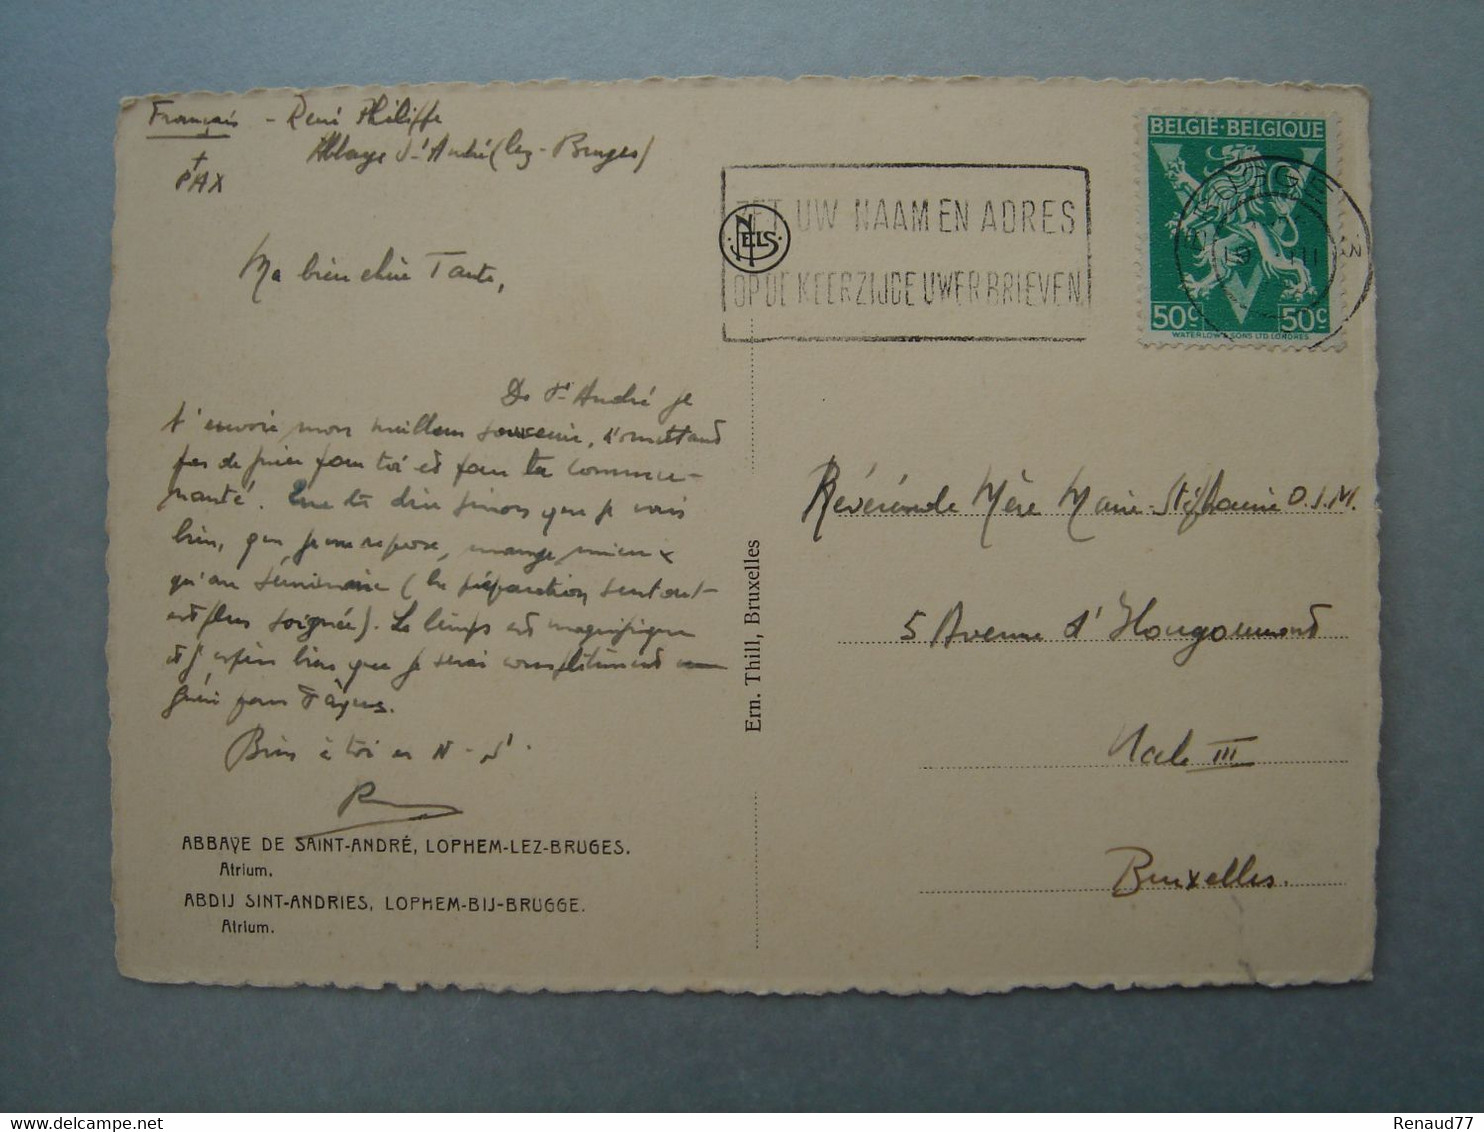 Français - René Philippe
Abbaye St-André (lez-Bruges)
+
PAX
Ma bien chère Tante,
De St-André je
t'envoie mon meilleur souvenir, n'omettant
pas de prier pour toi et pour ta commu-
nauté. Que te dire sinon que je vais
bien, que je me repose, mange mieux
qu'au séminaire (la préparation surtout
est plus soignée). Le temps est magnifique
et j'espère bien que je serai complètement
guéri pour Pâques.
Bien à toi en N-S.
ABBAYE DE SAINT-ANDRÉ, LOPHEM-LEZ-BRUGES.
Atrium.
ABDIJ SINT-ANDRIES, LOPHEM-BIJ-BRUGGE.
Atrium.
NELS
Ern. Thill, Bruxelles
ZET UW NAAM EN ADRES
OP DE KEERZIJDE UWER BRIEVEN
BELGIË-BELGIQUE
50c 50c
WATERLOW & SONS LTD. LONDRES
BRUGGE 3
Révérende Mère Marie-Stéphanie O.S.M.
5 Avenue d'Hougoumont
Uccle III
Bruxelles.
Renaud77